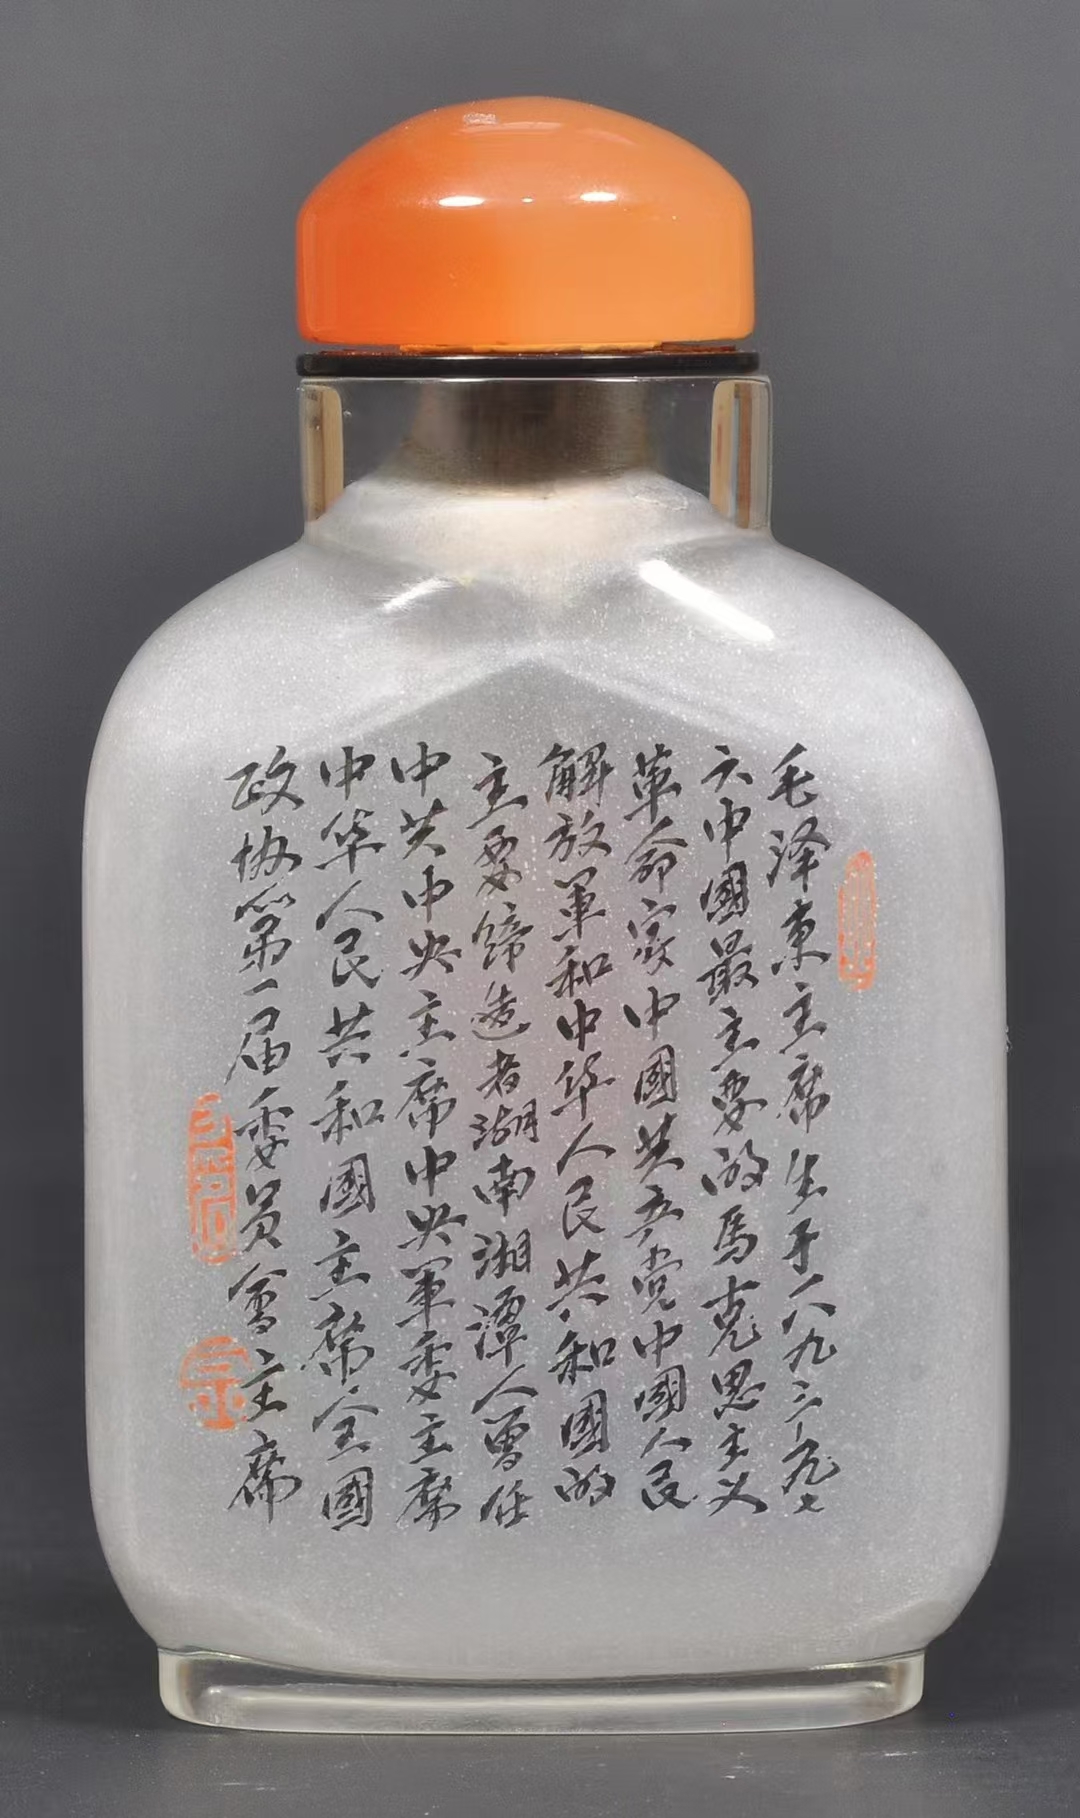 毛泽東主席生于一八九三一九七
六中國最主要的馬克思主义
革命家中國共产党中國人民
解放軍和中华人民共和國的
主要缔造者湖南湘潭人曾任
中共中央主席中央軍委主席
中华人民共和國主席全國
政协第一届委员會主席